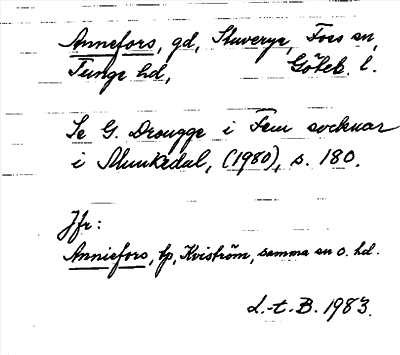 Annefors, gd, Stuveryr, Foss sn,
Tunge hd, Göteb. l.
Se G. Drougge i Fem socknar
i Munkedal, (1980), s. 180.
Jfr:
Anniefors, tp, Kviström, samma sn o. hd.
L.-t. B. 1983.